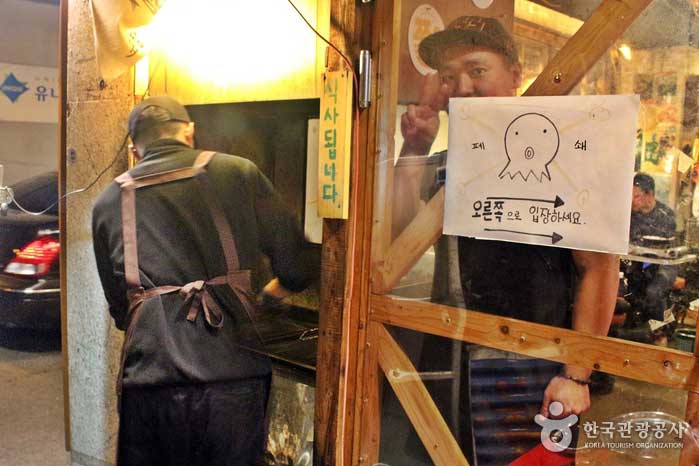 유니
식사됩니다
폐 쇄
오른쪽으로 입장하세요.
한국관광공사
KOREA TOURISM ORGANIZATION